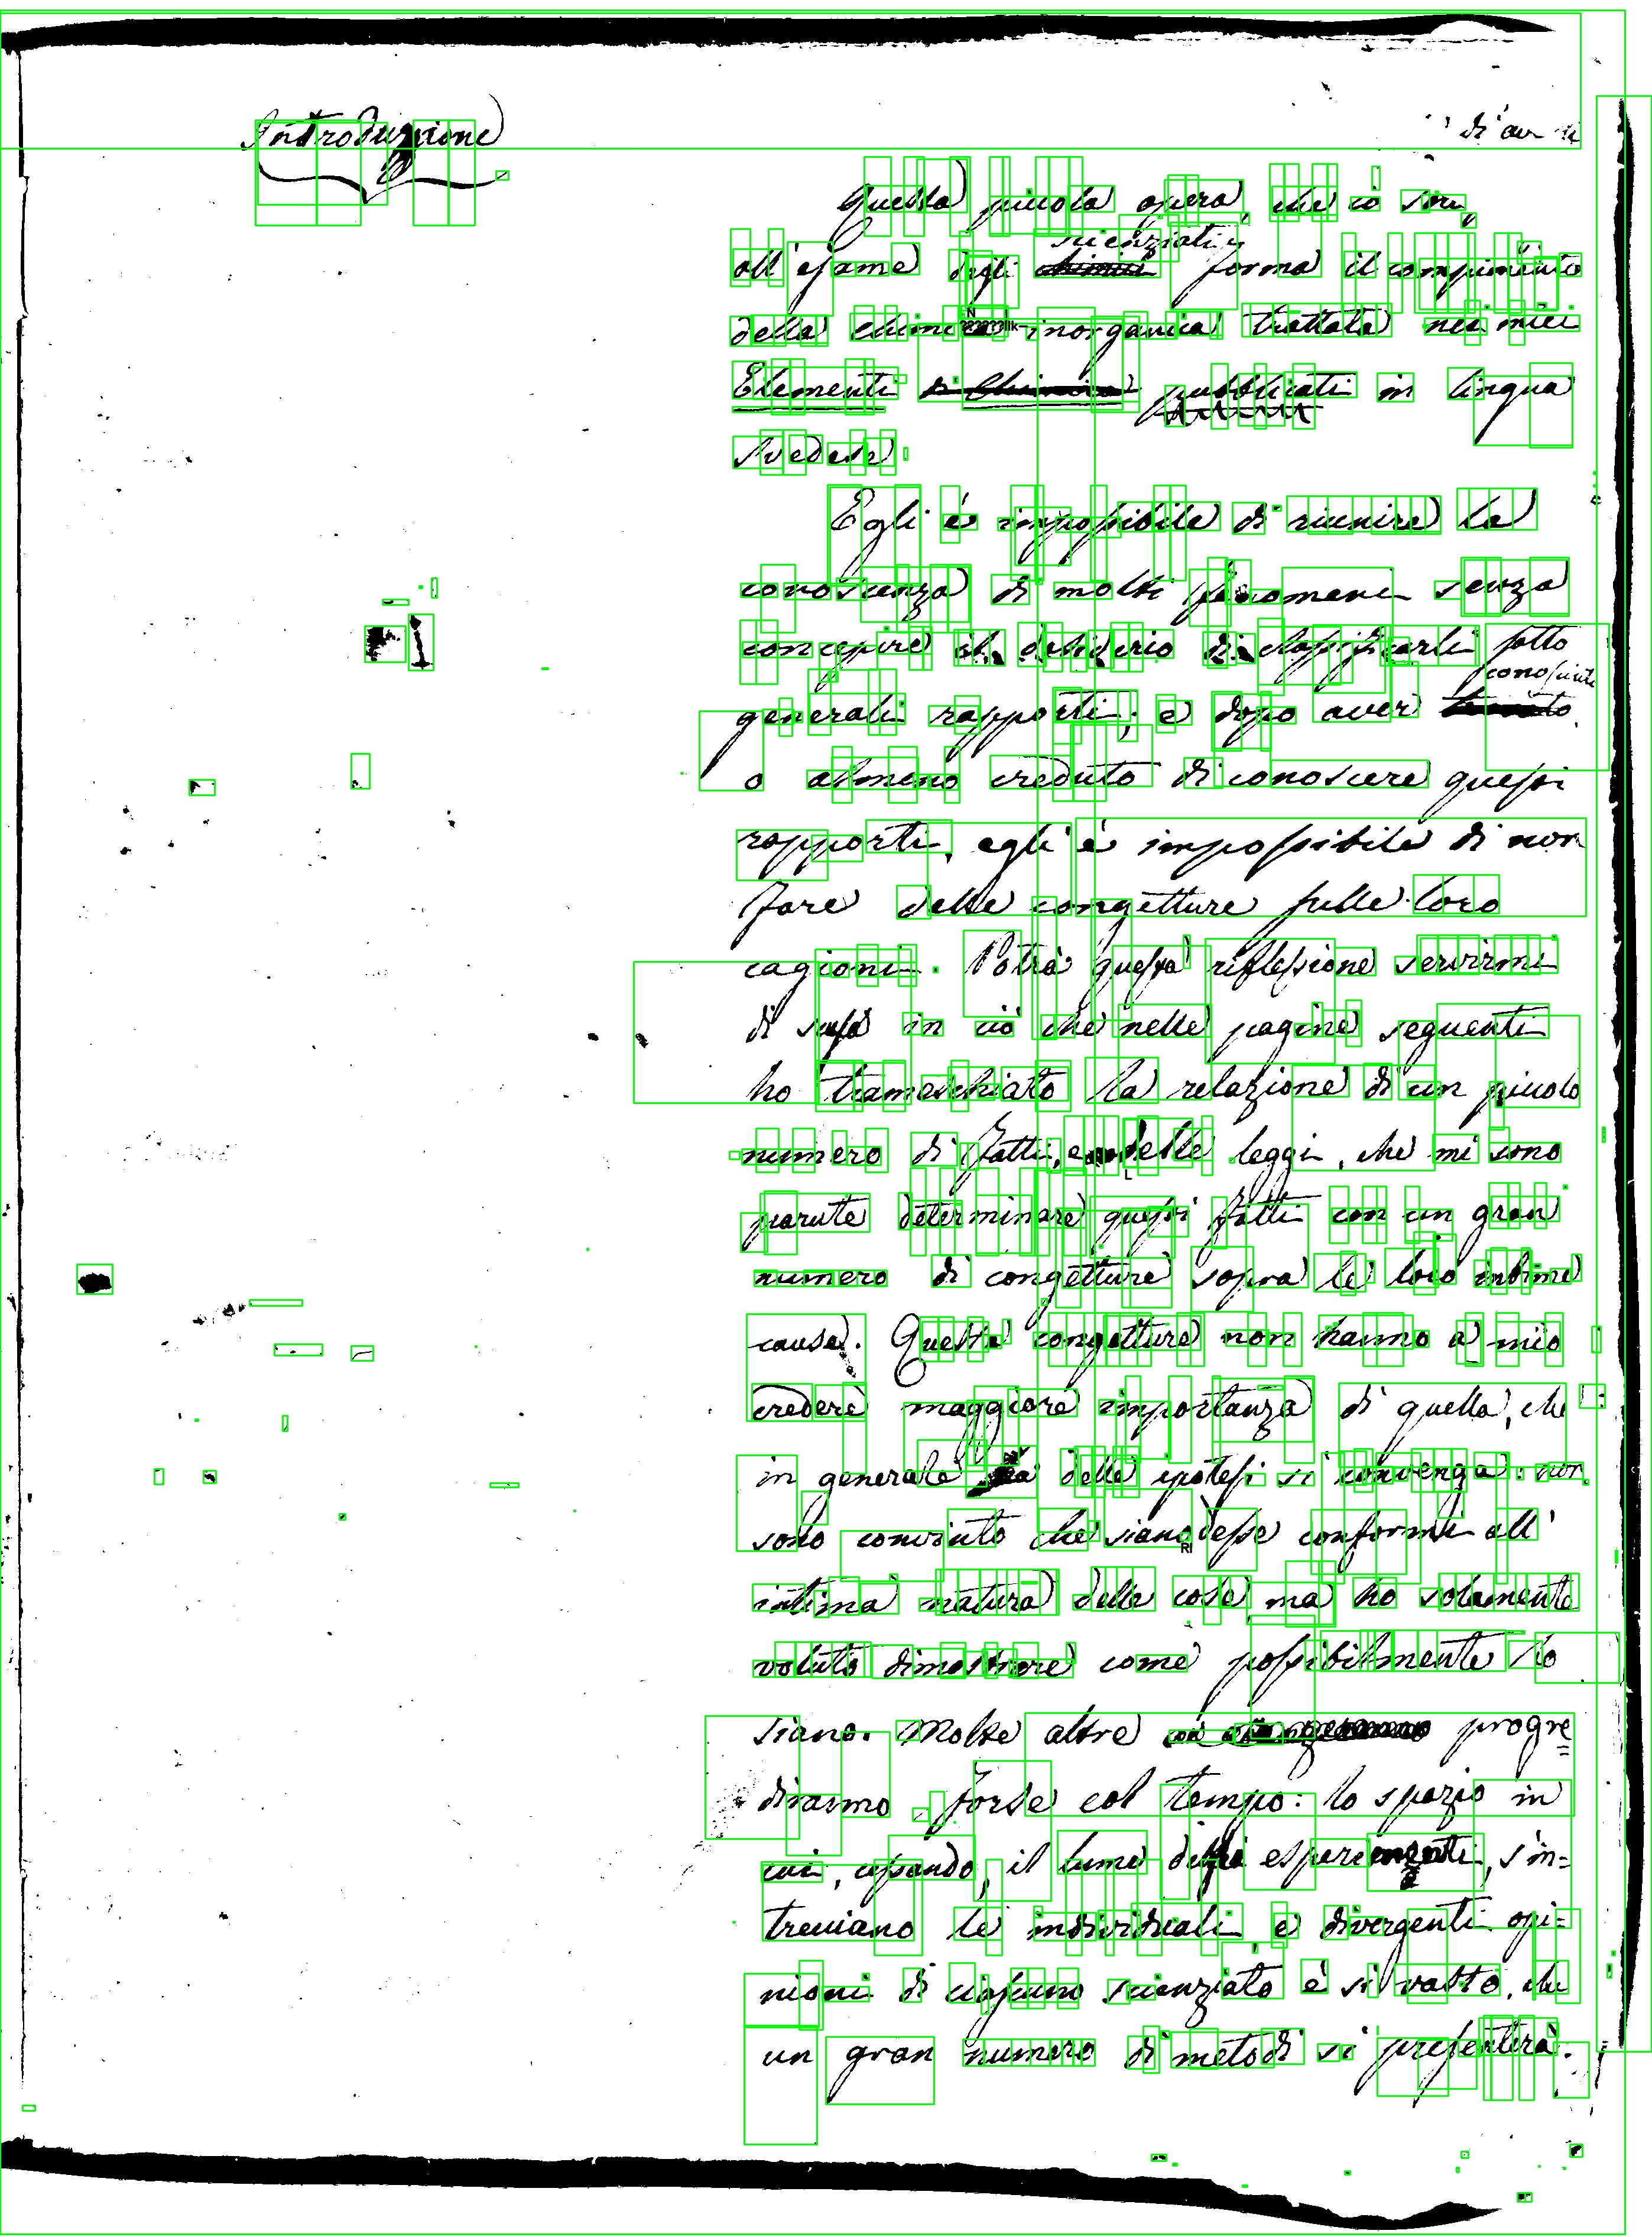 Introduzione
Questa piccola opera, che io
scienziati
all'esame degli chimici forma il compimento
della chimica inorganica trattata nei miei
Elementi di Chimica pubblicati in lingua
Svedese.
Egli è impossibile di riunire la
conoscenza di molti fenomeni senza
concepire il desiderio di classificarli sotto
conosciuto
generali rapporti; e dopo aver
o almeno creduto di conoscere questi
rapporti, egli è impossibile di non
fare delle congetture sulle loro
cagioni. Potrà questa riflessione servirmi
di scusa in ciò che nelle pagine seguenti
ho tramischiato la relazione di un piccolo
numero di fatti, e delle leggi, che mi sono
parute determinare questi fatti con un gran
numero di congetture sopra le loro intime
cause. Queste congetture non hanno a mio
credere maggiore importanza di quella, che
in generale a delle ipotesi si convenga: non
sono convinto che siano desse conformi all'
intima natura delle cose ma ho solamente
voluto dimostrare come possibilmente lo
siano. Molte altre progre
diranno forse col tempo: lo spazio in
cui, cessando, il lume degli esperimenti, s'in=
trecciano le individuali e divergenti opi=
nioni di ciascuno scienziato è sì vasto, che
un gran numero di metodi si presenterà.